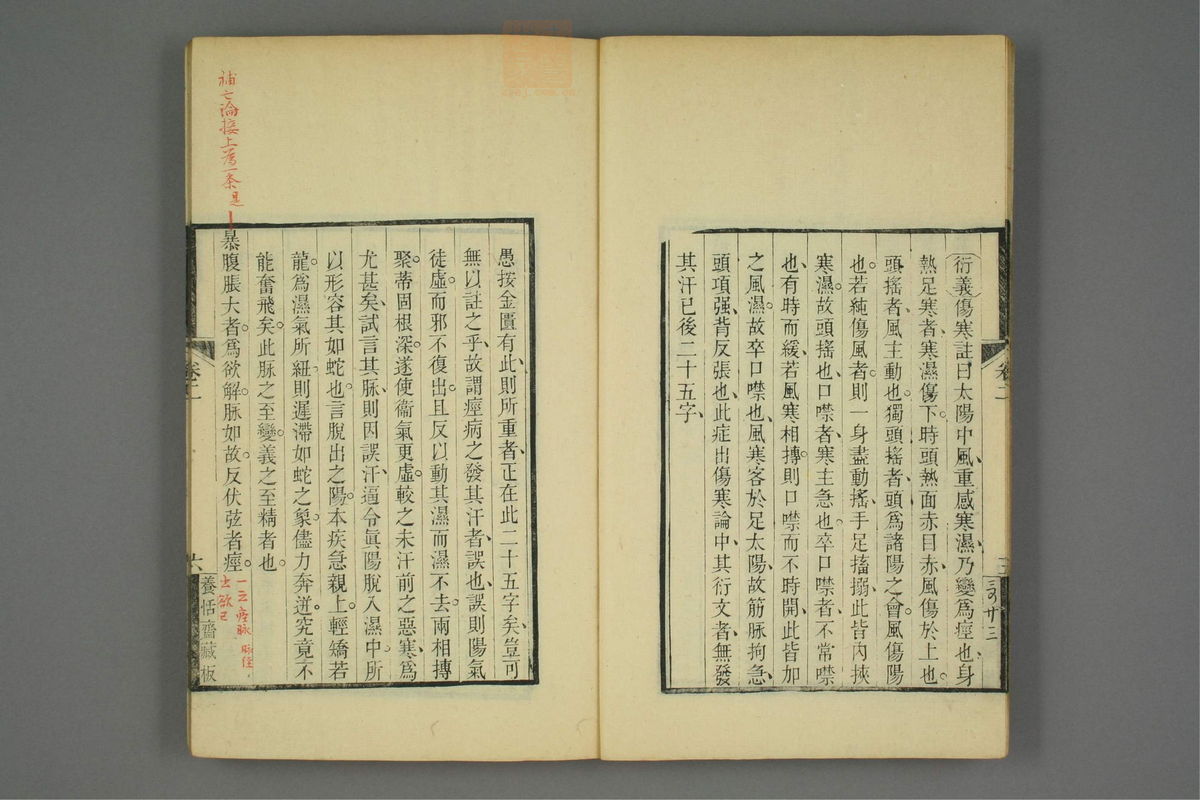 衍義傷寒註曰太陽中風重感寒濕乃變爲痙也身
熱足寒者寒濕傷下時頭熱面赤目赤風傷於上也
頭搖者風主動也獨頭搖者頭爲諸陽之會風傷陽
也若純傷風者則一身盡動搖手足搐搦此皆內挾
寒濕故頭搖也口噤者寒主急也卒口噤者不常噤
也有時而緩若風寒相摶則口噤而不時開此皆加
之風濕故卒口噤也風寒客於足太陽故筋脈拘急
頭項强背反張也此症出傷寒論中其衍文者無發
其汗已後二十五字
卷二
愚按金匱有此則所重者正在此二十五字矣豈可
無以註之乎故謂痙病之發其汗者誤也誤則陽氣
徒虛而邪不復出且反以動其濕而濕不去兩相摶
聚蒂固根深遂使衞氣更虛較之未汗前之惡寒爲
尤甚矣試言其脈則因誤汗逼令眞陽脫入濕中所
以形容其如蛇也言脫出之陽本疾急親上輕矯若
龍爲濕氣所紐則遲滯如蛇之象儘力奔迸究竟不
能奮飛矣此脈之至變義之至精者也
暴腹脹大者爲欲解脈如故反伏弦者痙
補亡論接上爲一条是
一云痓脈
出欲已
卷二
六
養恬齋藏板